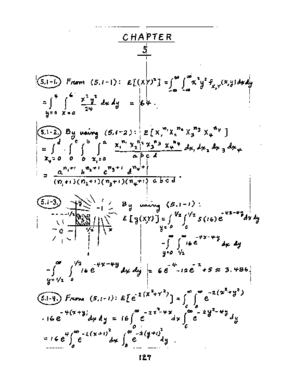 CHAPTER
5
5.1-1. From (5.1-1): E[(XY)²] = ∫_{-∞}^{∞} ∫_{-∞}^{∞} x² y² f_{X,Y}(x,y) dx dy
= ∫_{y=0}^{4} ∫_{x=0}^{6} x²y²/24 dx dy = 64.
5.1-2. By using (5.1-2): E[X₁^{n₁} X₂^{n₂} X₃^{n₃} X₄^{n₄}]
= ∫_{x₄=0}^{d} ∫_{0}^{c} ∫_{0}^{b} ∫_{x₁=0}^{a} x₁^{n₁} x₂^{n₂} x₃^{n₃} x₄^{n₄} / a b c d dx₁ dx₂ dx₃ dx₄
= a^{n₁+1} b^{n₂+1} c^{n₃+1} d^{n₄+1} / (n₁+1)(n₂+1)(n₃+1)(n₄+1) a b c d .
5.1-3. By using (5.1-1):
E[g(X,Y)] =
= 6e^{-4} - 12e^{-2} + 5 ≈ 3.486.
5.1-4. From (5.1-1): E[e^{-2(X²+Y²)}] = ∫_{0}^{∞} ∫_{0}^{∞} e^{-2(x²+y²)}
· 16 e^{-4(x+y)} dx dy = 16 ∫_{0}^{∞} e^{-2x²-4x} dx ∫_{0}^{∞} e^{-2y²-4y} dy
= 16 e⁴ ∫_{0}^{∞} e^{-2(x+1)²} dx ∫_{0}^{∞} e^{-2(y+1)²} dy .
127